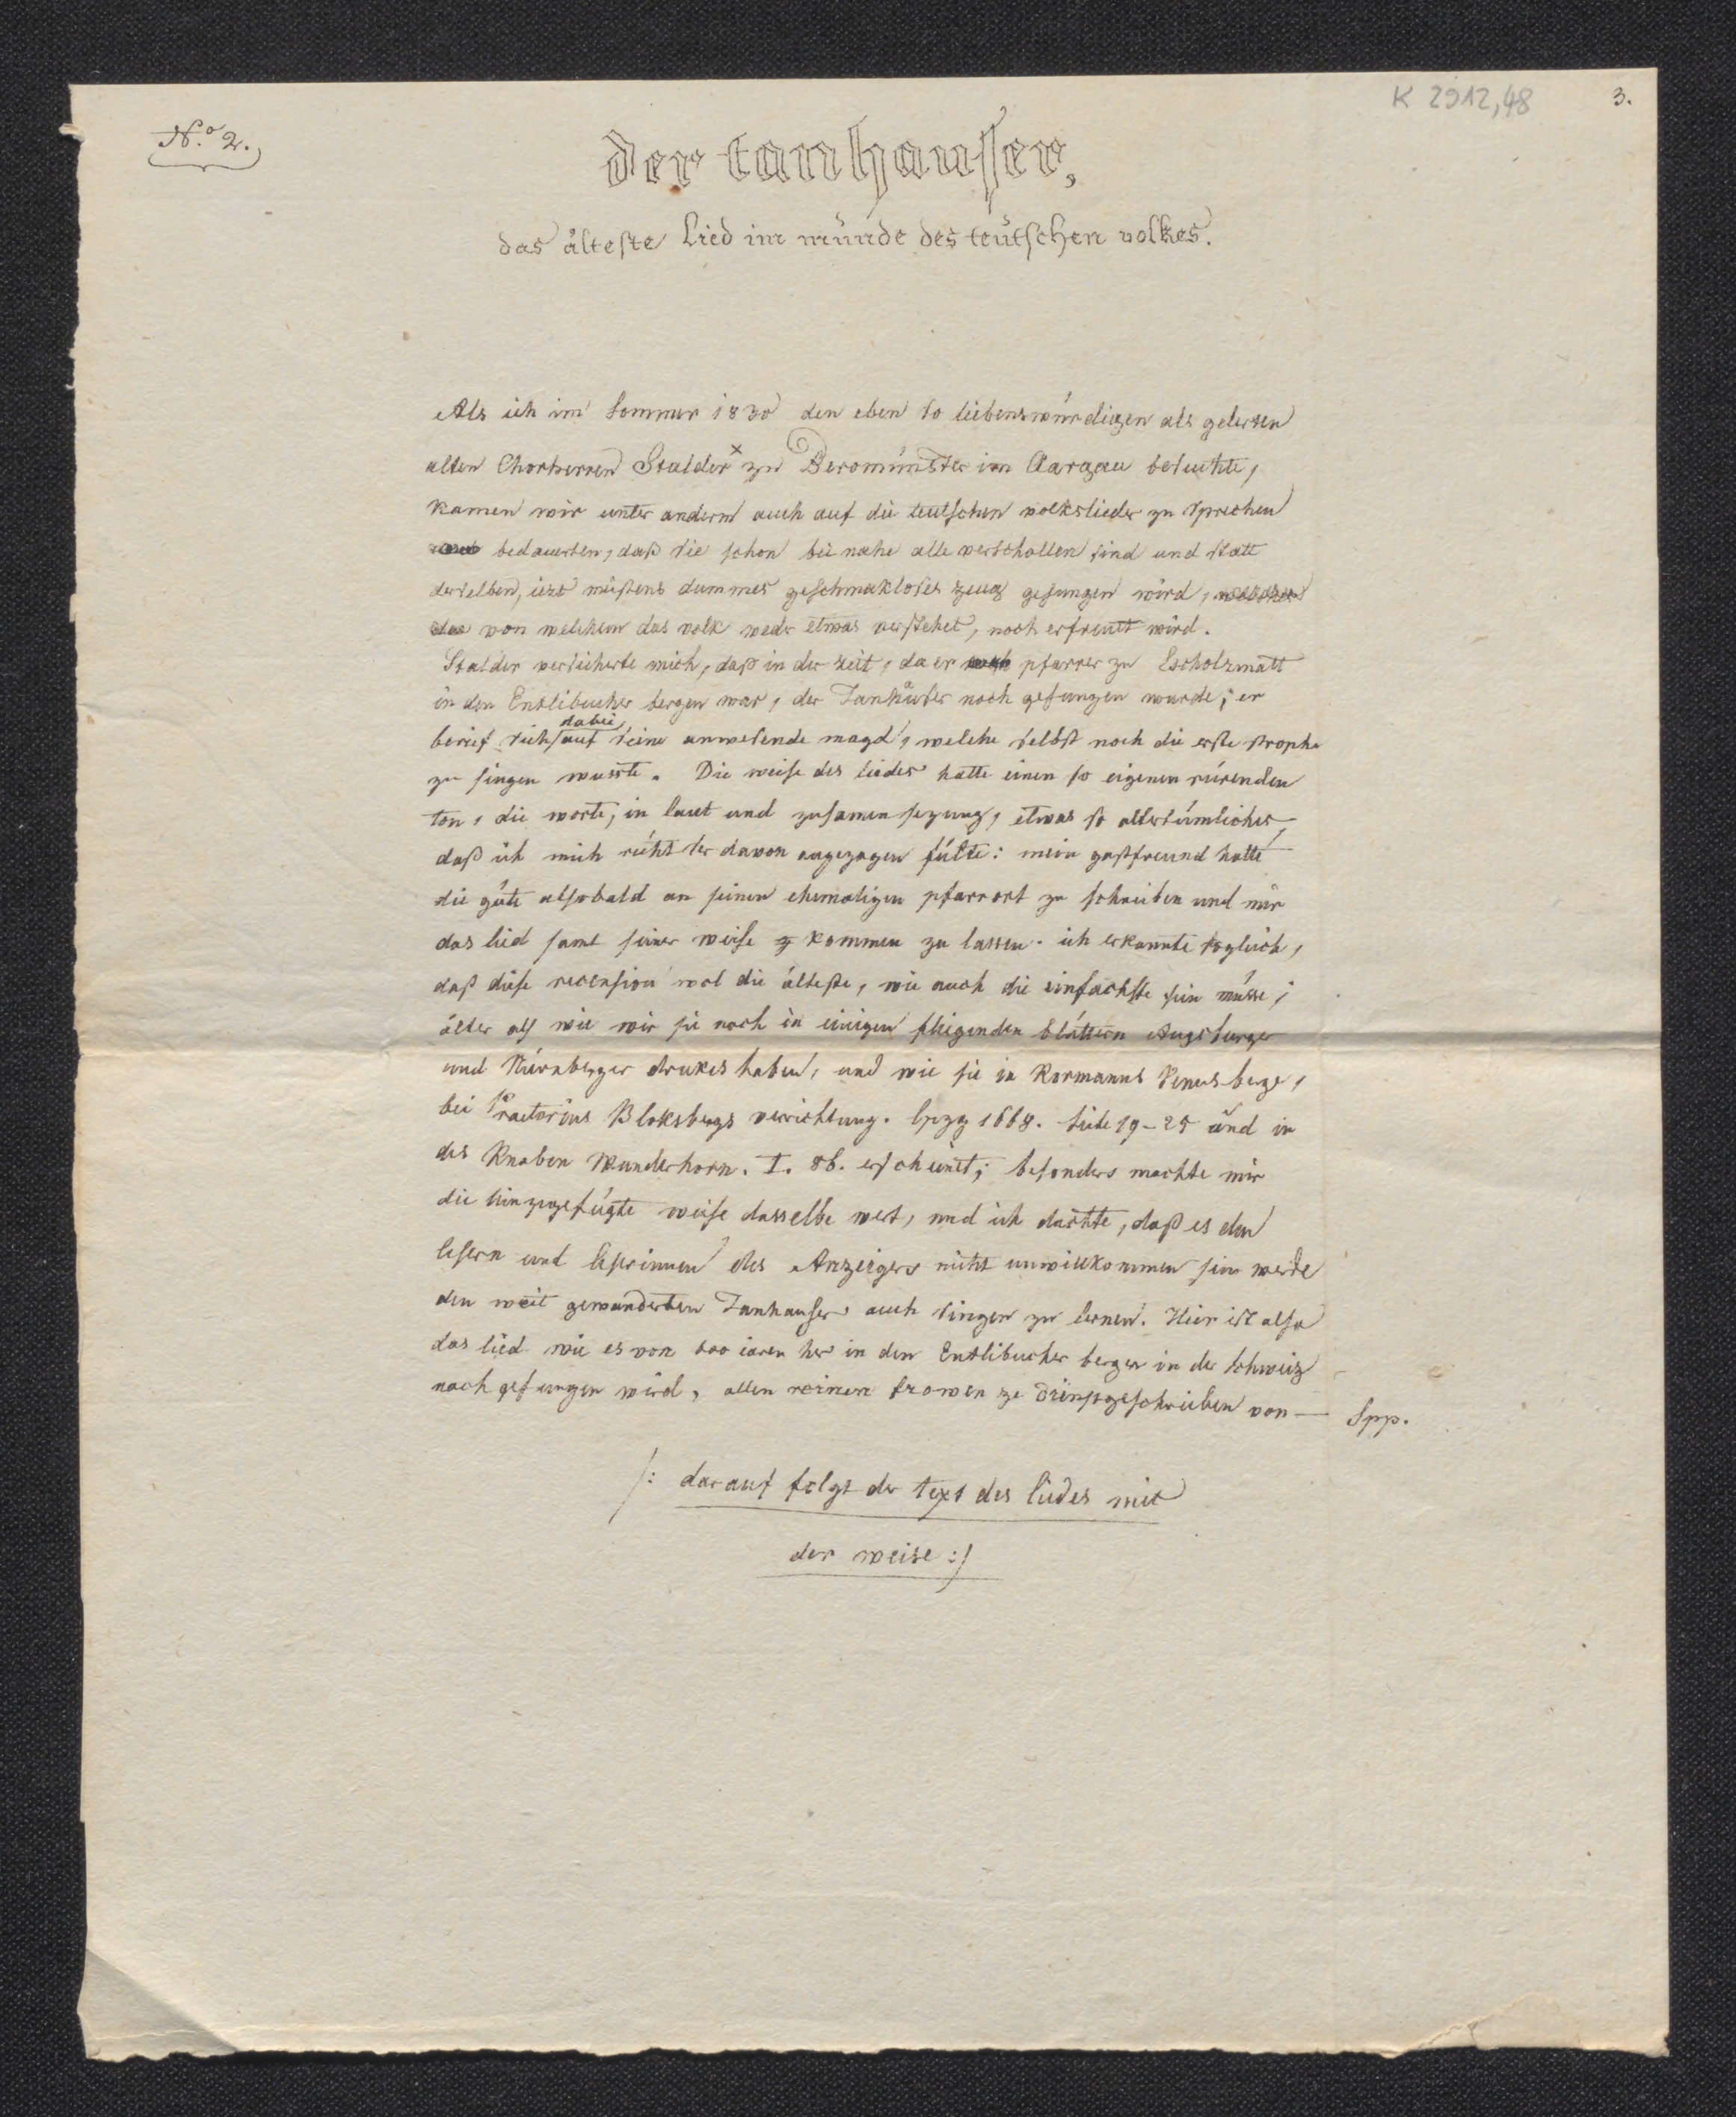 K 2912,48
3.
N.o 2.
der tanhauser,
das älteste Lied im munde des teutschen volkes.
Als ich im sommer 1830 den eben so liebenswürdigen als gelerten
alten Chorherren Stalder x zu Beromünster im Aargau besuchte,
kamen wir unter anderm auch auf die teutschen volkslieder zu sprechen
und bedauerten, daß sie schon bei nahe alle verschollen sind und statt
derselben, iezt meistens dummes geschmakloses zeug gesungen wird, welches
das von welchem das volk weder etwas verstehet, noch erfreuet wird.
Stalder versicherte mich, daß in der zeit, da er pfarrer zu Escholzmatt
in den Entlibucher bergen war, der Tanhuser noch gesungen wurde; er
berief sich dabei auf seine anwesende magd, welche selbst noch die erste strophe
zu singen wusste. Die weise des liedes hatte einen so eigenen rürenden
ton, die worte, in laut und zusamensezung, etwas so altertümliches,
daß ich mich recht ser davon angezogen fülte: mein gastfreund hatte
die güte alsobald an seinen ehemaligen pfarrort zu schreiben und mir
das lied samt seiner weise z kommen zu lassen. ich erkannte sogleich,
daß diese recension wol die älteste, wie auch die einfachste sein müsse;
älter als wie wir sie noch in einigen fliegenden blättern Augsburger
und Nürnberger drukes haben, und wie sie in Kormanns Venusberge,
bei Praetorius Bloksbergs verrichtung. lpzg 1668. seite 19-25 und in
des Knaben Wunderhorn. I. 86. erscheint; besonders machte mir
die hinzugefügte weise dasselbe wert, und ich dachte, daß es den
lesern und leserinnen des Anzeigers nicht unwillkommen sein werde
den weit gewanderten Tanhauser auch singen zu lernen. Hier ist also
das lied wie es von 600 iaren her in den Entlibucher bergen in der Schweiz
noch gesungen wird, allen reinen frowen ze dienst geschrieben von — Spp.
/: darauf folgt der text des liedes mit
der weise :/